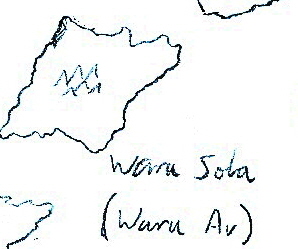 Waru Sola
(Waru Av)